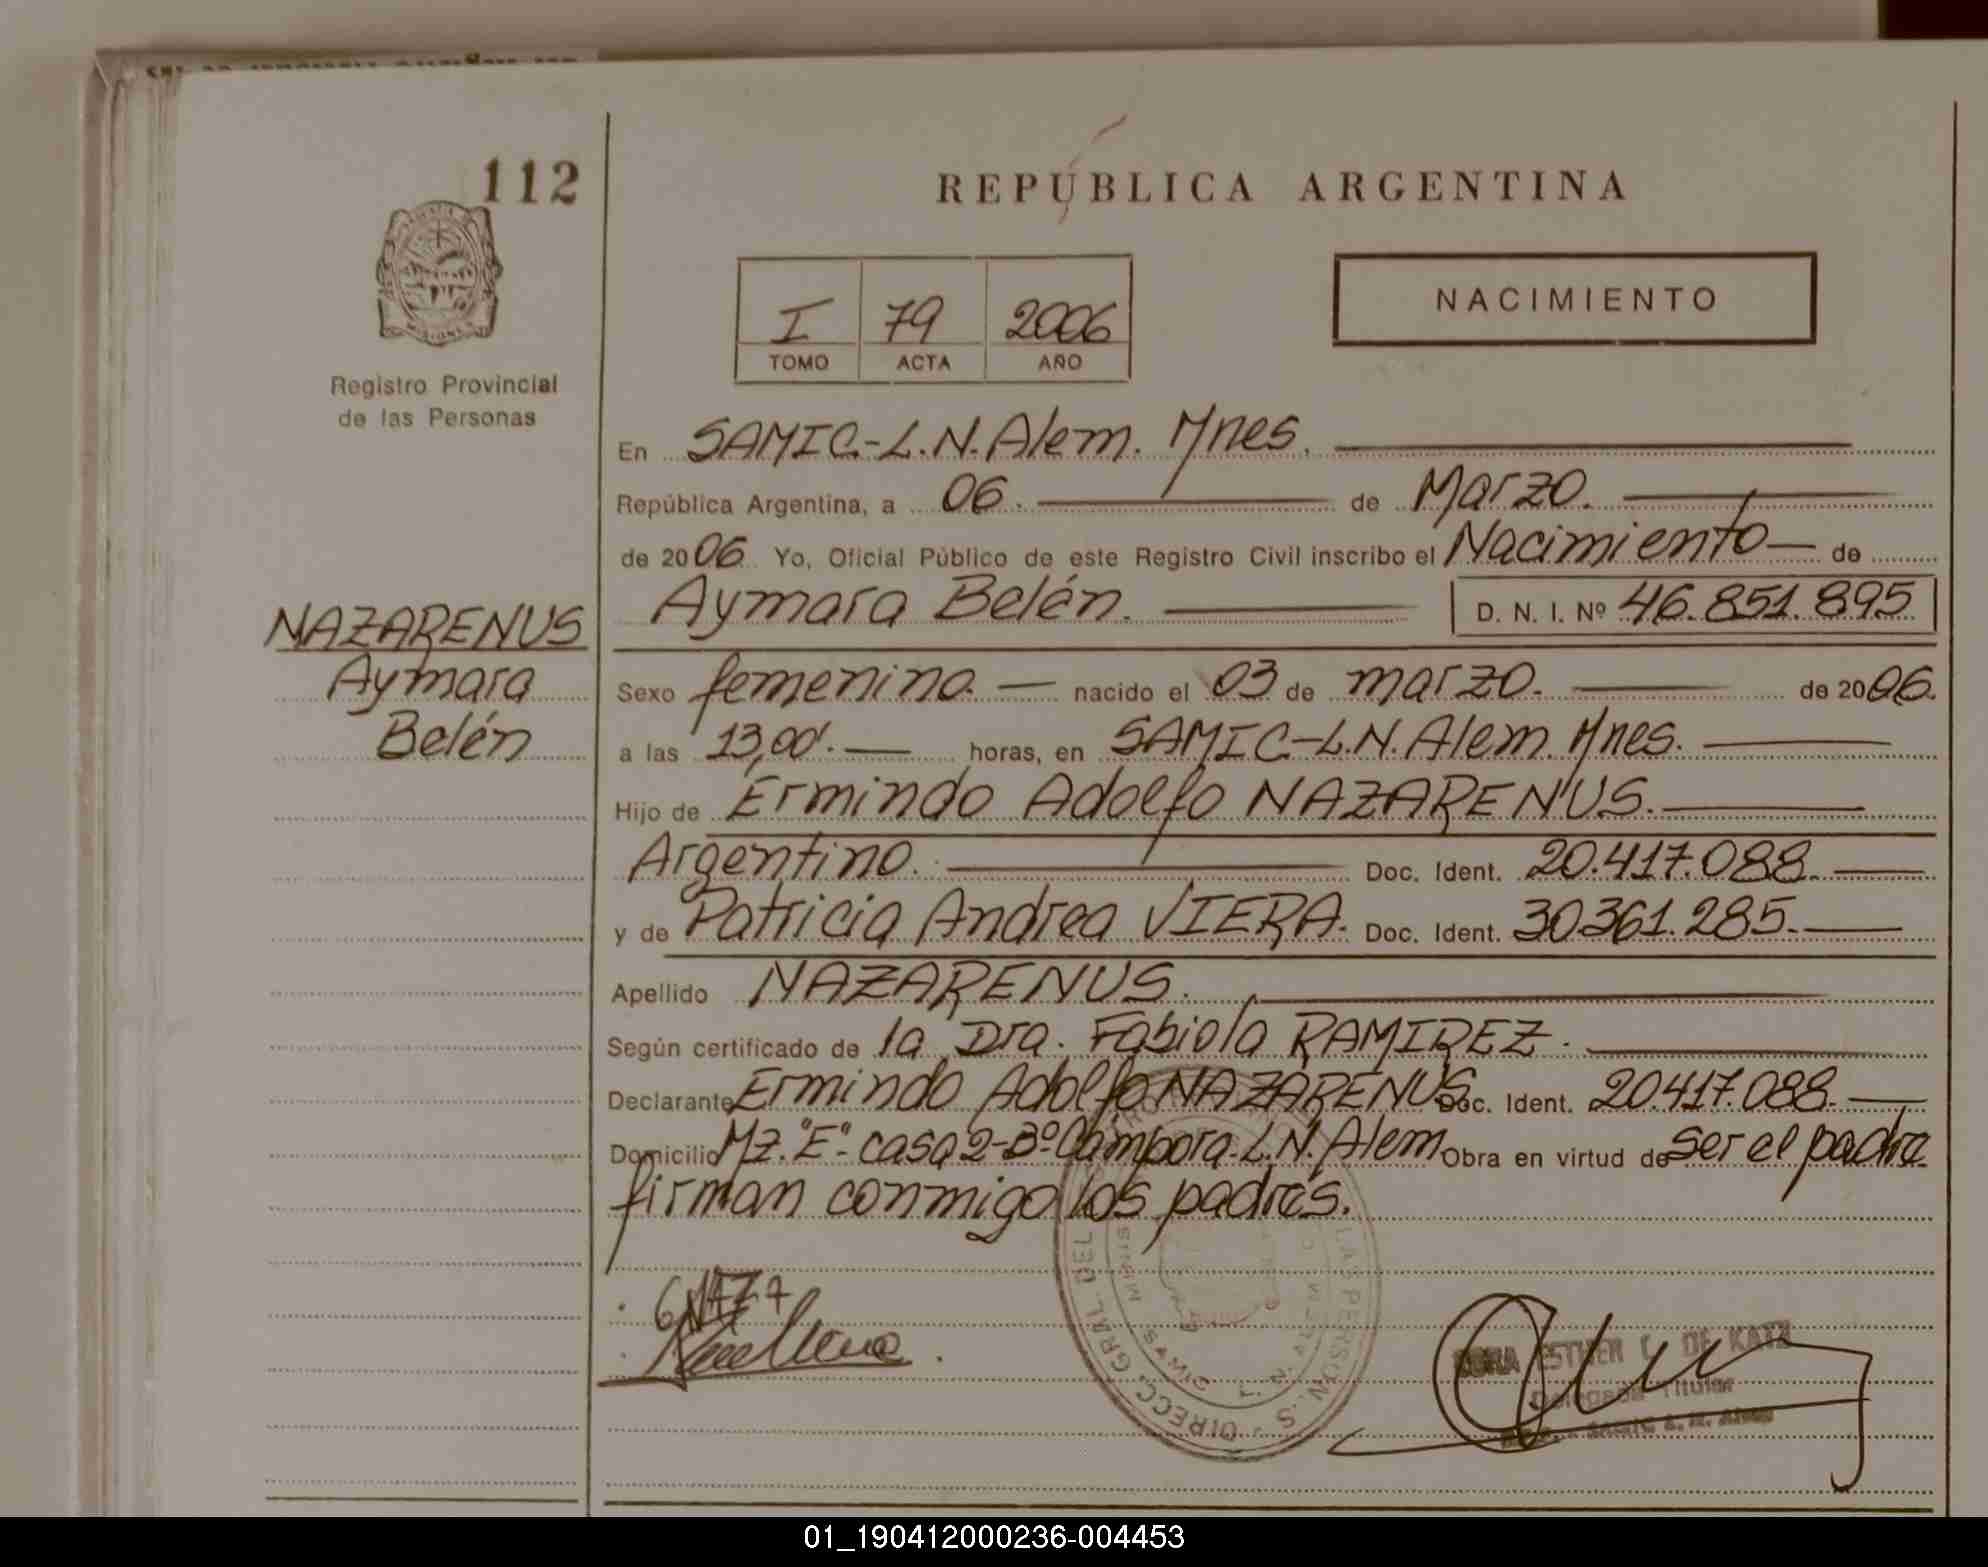 112
REPÚBLICA ARGENTINA
I 79 2006
TOMO ACTA AÑO
NACIMIENTO
Registro Provincial
de las Personas
NAZARENUS
Aymara
Belén
En SAMIC-L.N.Alem. Mnes.
República Argentina, a 06. de Marzo.
de 2006 Yo, Oficial Público de este Registro Civil inscribo el Nacimiento de
Aymara Belén. D. N. I. Nº 46.851.895
Sexo femenino. nacido el 03 de marzo. de 2006.
a las 13,00'. horas, en SAMIC-L.N.Alem. Mnes.
Hijo de Ermindo Adolfo NAZARENUS.
Argentino. Doc. Ident. 20.417.088.
y de Patricia Andrea VIERA. Doc. Ident. 30361.285.
Apellido NAZARENUS.
Según certificado de la Dra. Fabiola RAMIREZ.
Declarante Ermindo Adolfo NAZARENUS Doc. Ident. 20.417.088.
Domicilio Mz."E"- casa 2-Bº Campora-L.N.Alem Obra en virtud de ser el padre
firman conmigo los padres.
ESTHER DE KATZ
Delegada Titular
SAMIC L. N. Alem
01_190412000236-004453